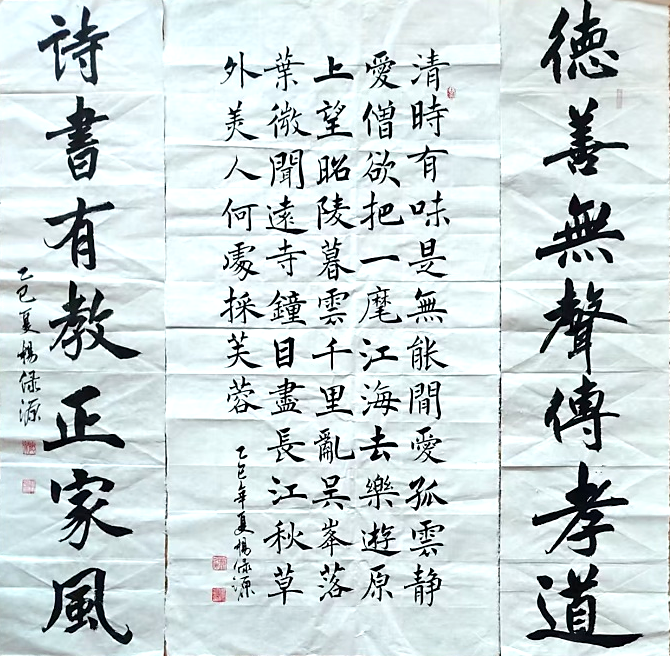 德善無聲傳孝道
清時有味是無能間愛孤雲静
愛僧欲把一麾江海去樂遊原
上望昭陵暮雲千里亂吴峯落
葉微聞遠寺鐘目盡長江秋草
外美人何處採芙蓉
乙巳年夏楊源
詩書有教正家風
乙巳夏楊源